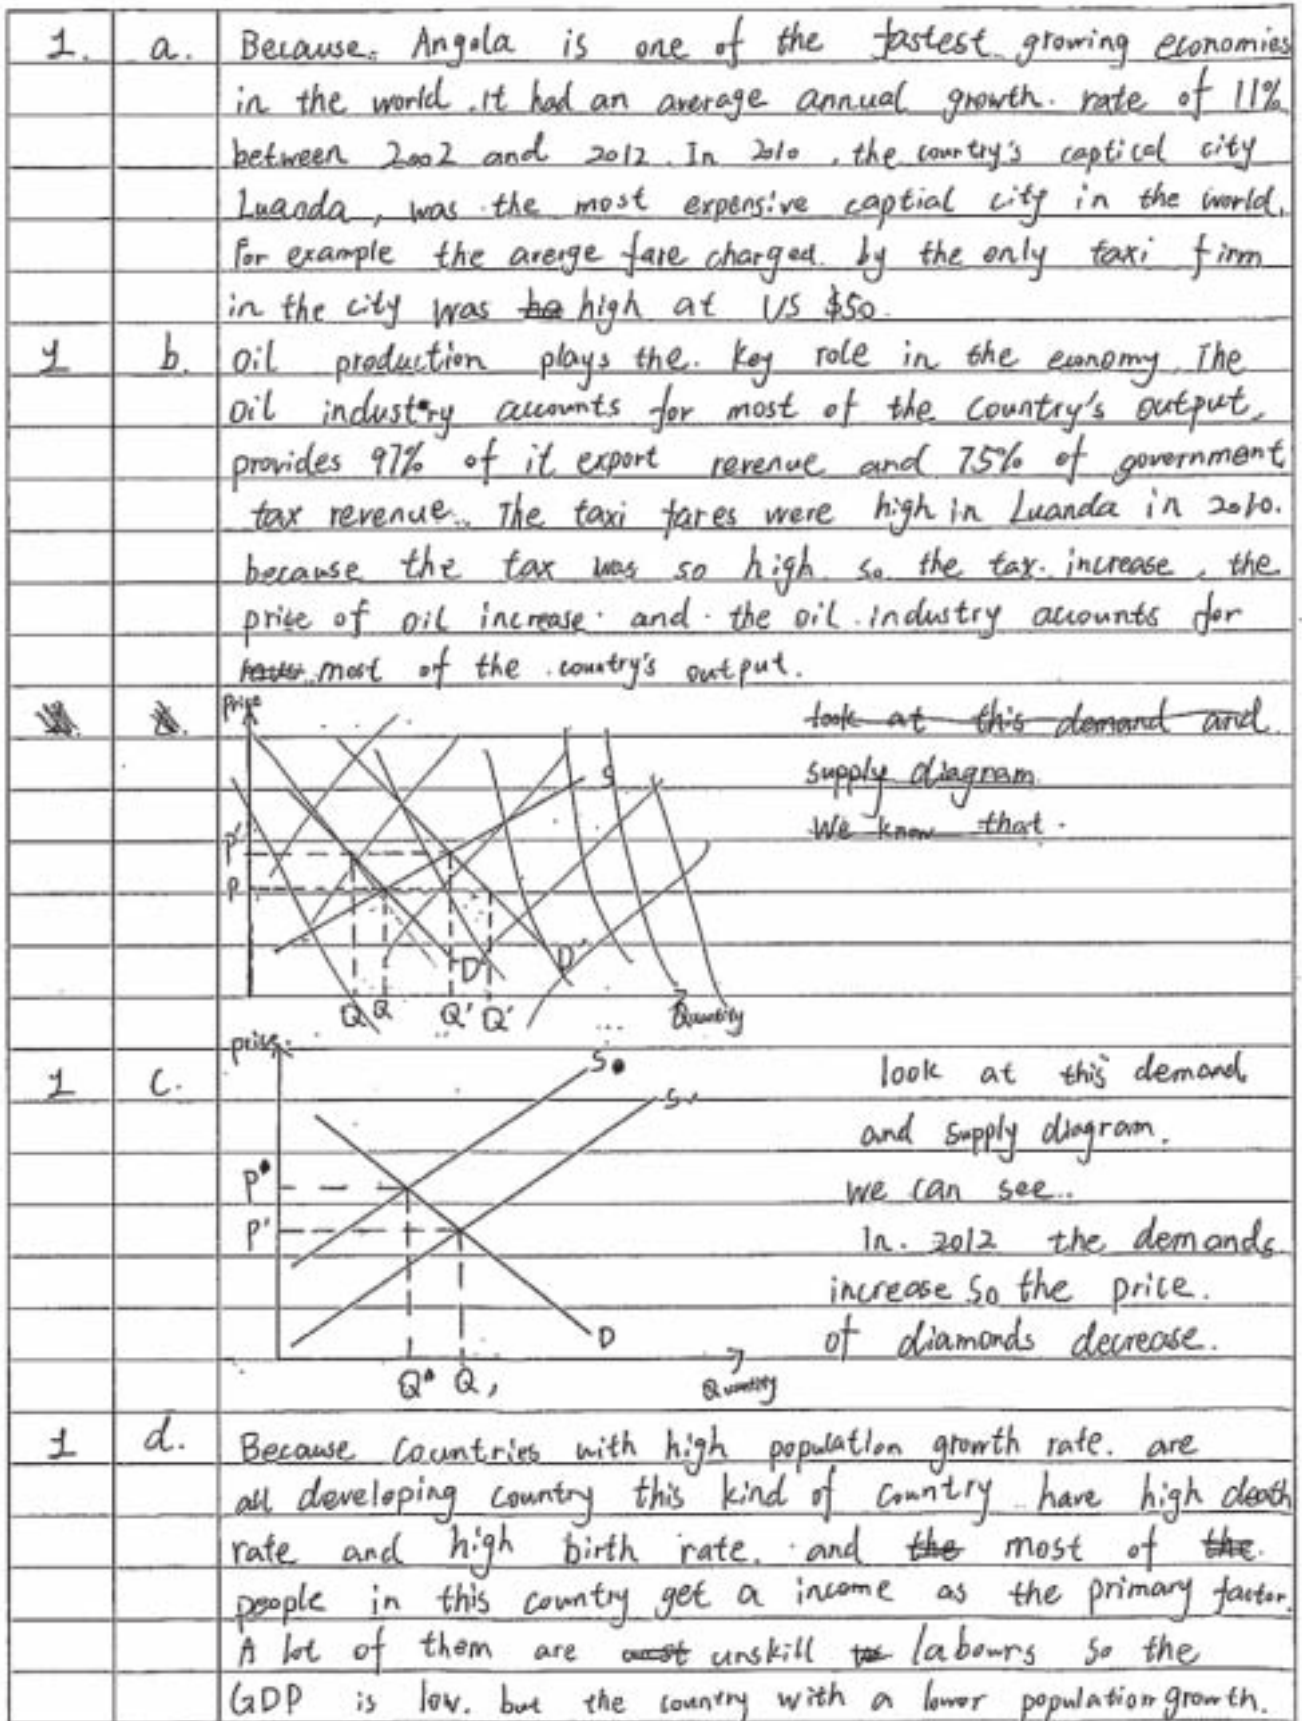 1. a. Because. Angola is one of the fastest growing economies
in the world. it had an average annual growth. rate of 11%
between 2002 and 2012. In 2010, the country's captical city
Luanda, was the most expensive captial city in the world.
for example the arerge fare charged. by the only taxi firm
in the city was high at US $50.
1 b. Oil production plays the. key role in the economy. The
oil industry accounts for most of the country's output,
provides 97% of it export revenue and 75% of government
tax revenue. The taxi fares were high in Luanda in 2010.
because the tax was so high. so the tax. increase, the
price of oil increase. and the oil industry accounts for
most of the country's output.
Price
look at this demand and
supply diagram
We know that.
S
P'
P
D D'
Q Q Q' Q'
Quantity
price
1 c. S
S'
look at this demand
and supply diagram.
we can see..
In. 2012 the demands
increase so the price.
of diamonds decrease.
P
P'
D
Q Q,
Quantity
1 d. Because countries with high population growth rate. are
all developing country this kind of country have high death
rate and high birth rate. and the most of the
people in this country get a income as the primary factor.
A lot of them are unskill labours so the
GDP is low. but the country with a lower population growth.